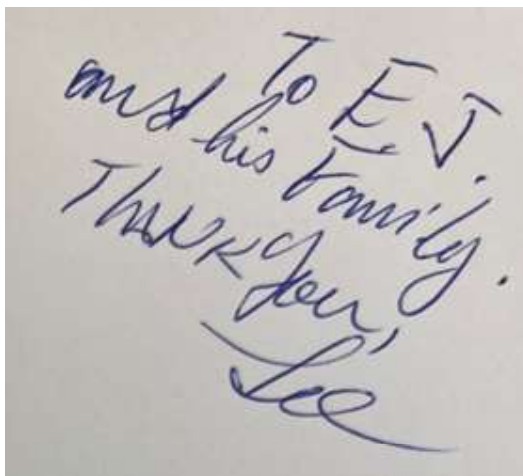 To E.J.
and his Family.
THANK You,
Lee